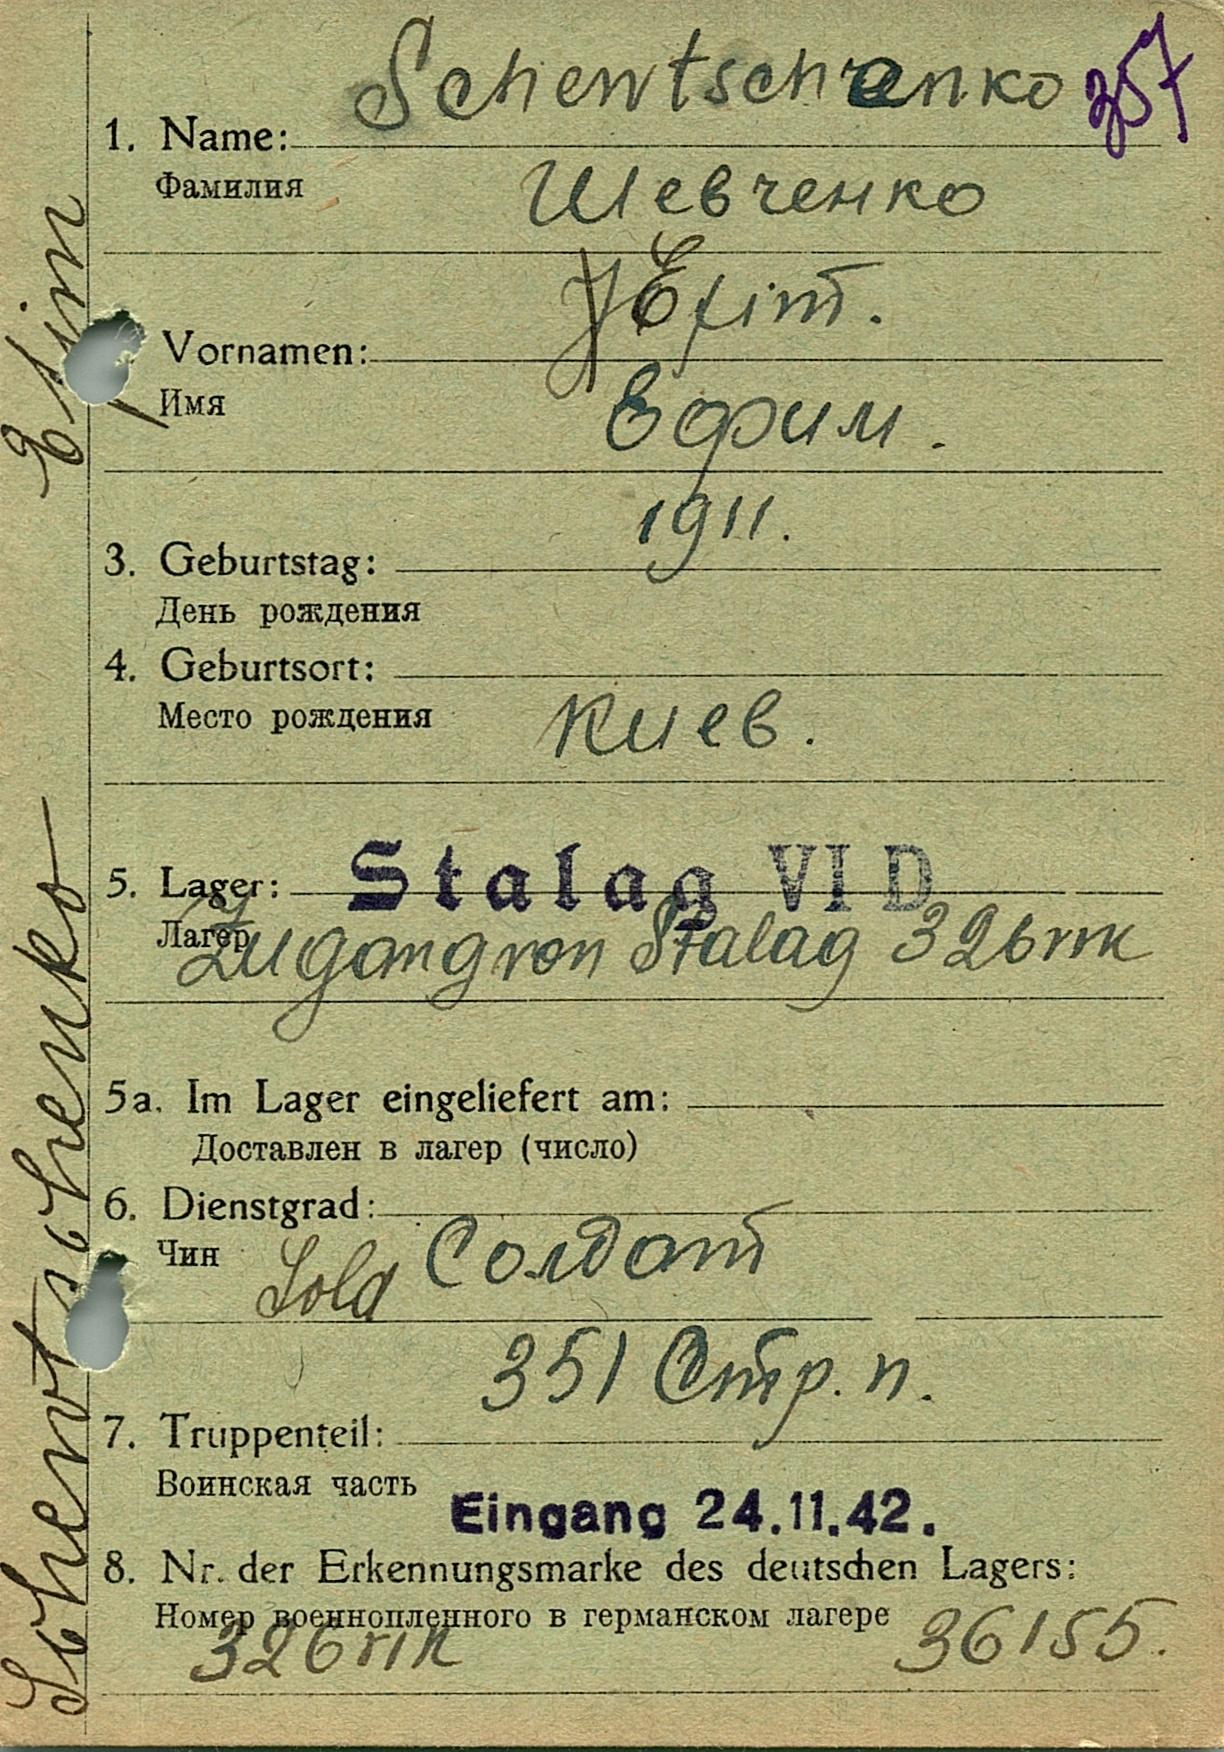 Schewtschenko 357
1. Name:
Фамилия
Шевченко
Efim.
Vornamen:
Имя
Ефим.
1911.
3. Geburtstag:
День рождения
4. Geburtsort:
Место рождения
Киев.
5. Lager: Stalag VI D
Лагер
Zugang von Stalag 326 VIK
5a. Im Lager eingeliefert am:
Доставлен в лагер (число)
6. Dienstgrad:
Чин
Sold Солдат
351 Стр. п.
7. Truppenteil:
Воинская часть
Eingang 24.11.42.
8. Nr. der Erkennungsmarke des deutschen Lagers:
Номер военнопленного в германском лагере
326 VIK 36155.
Schewtschenko Efim